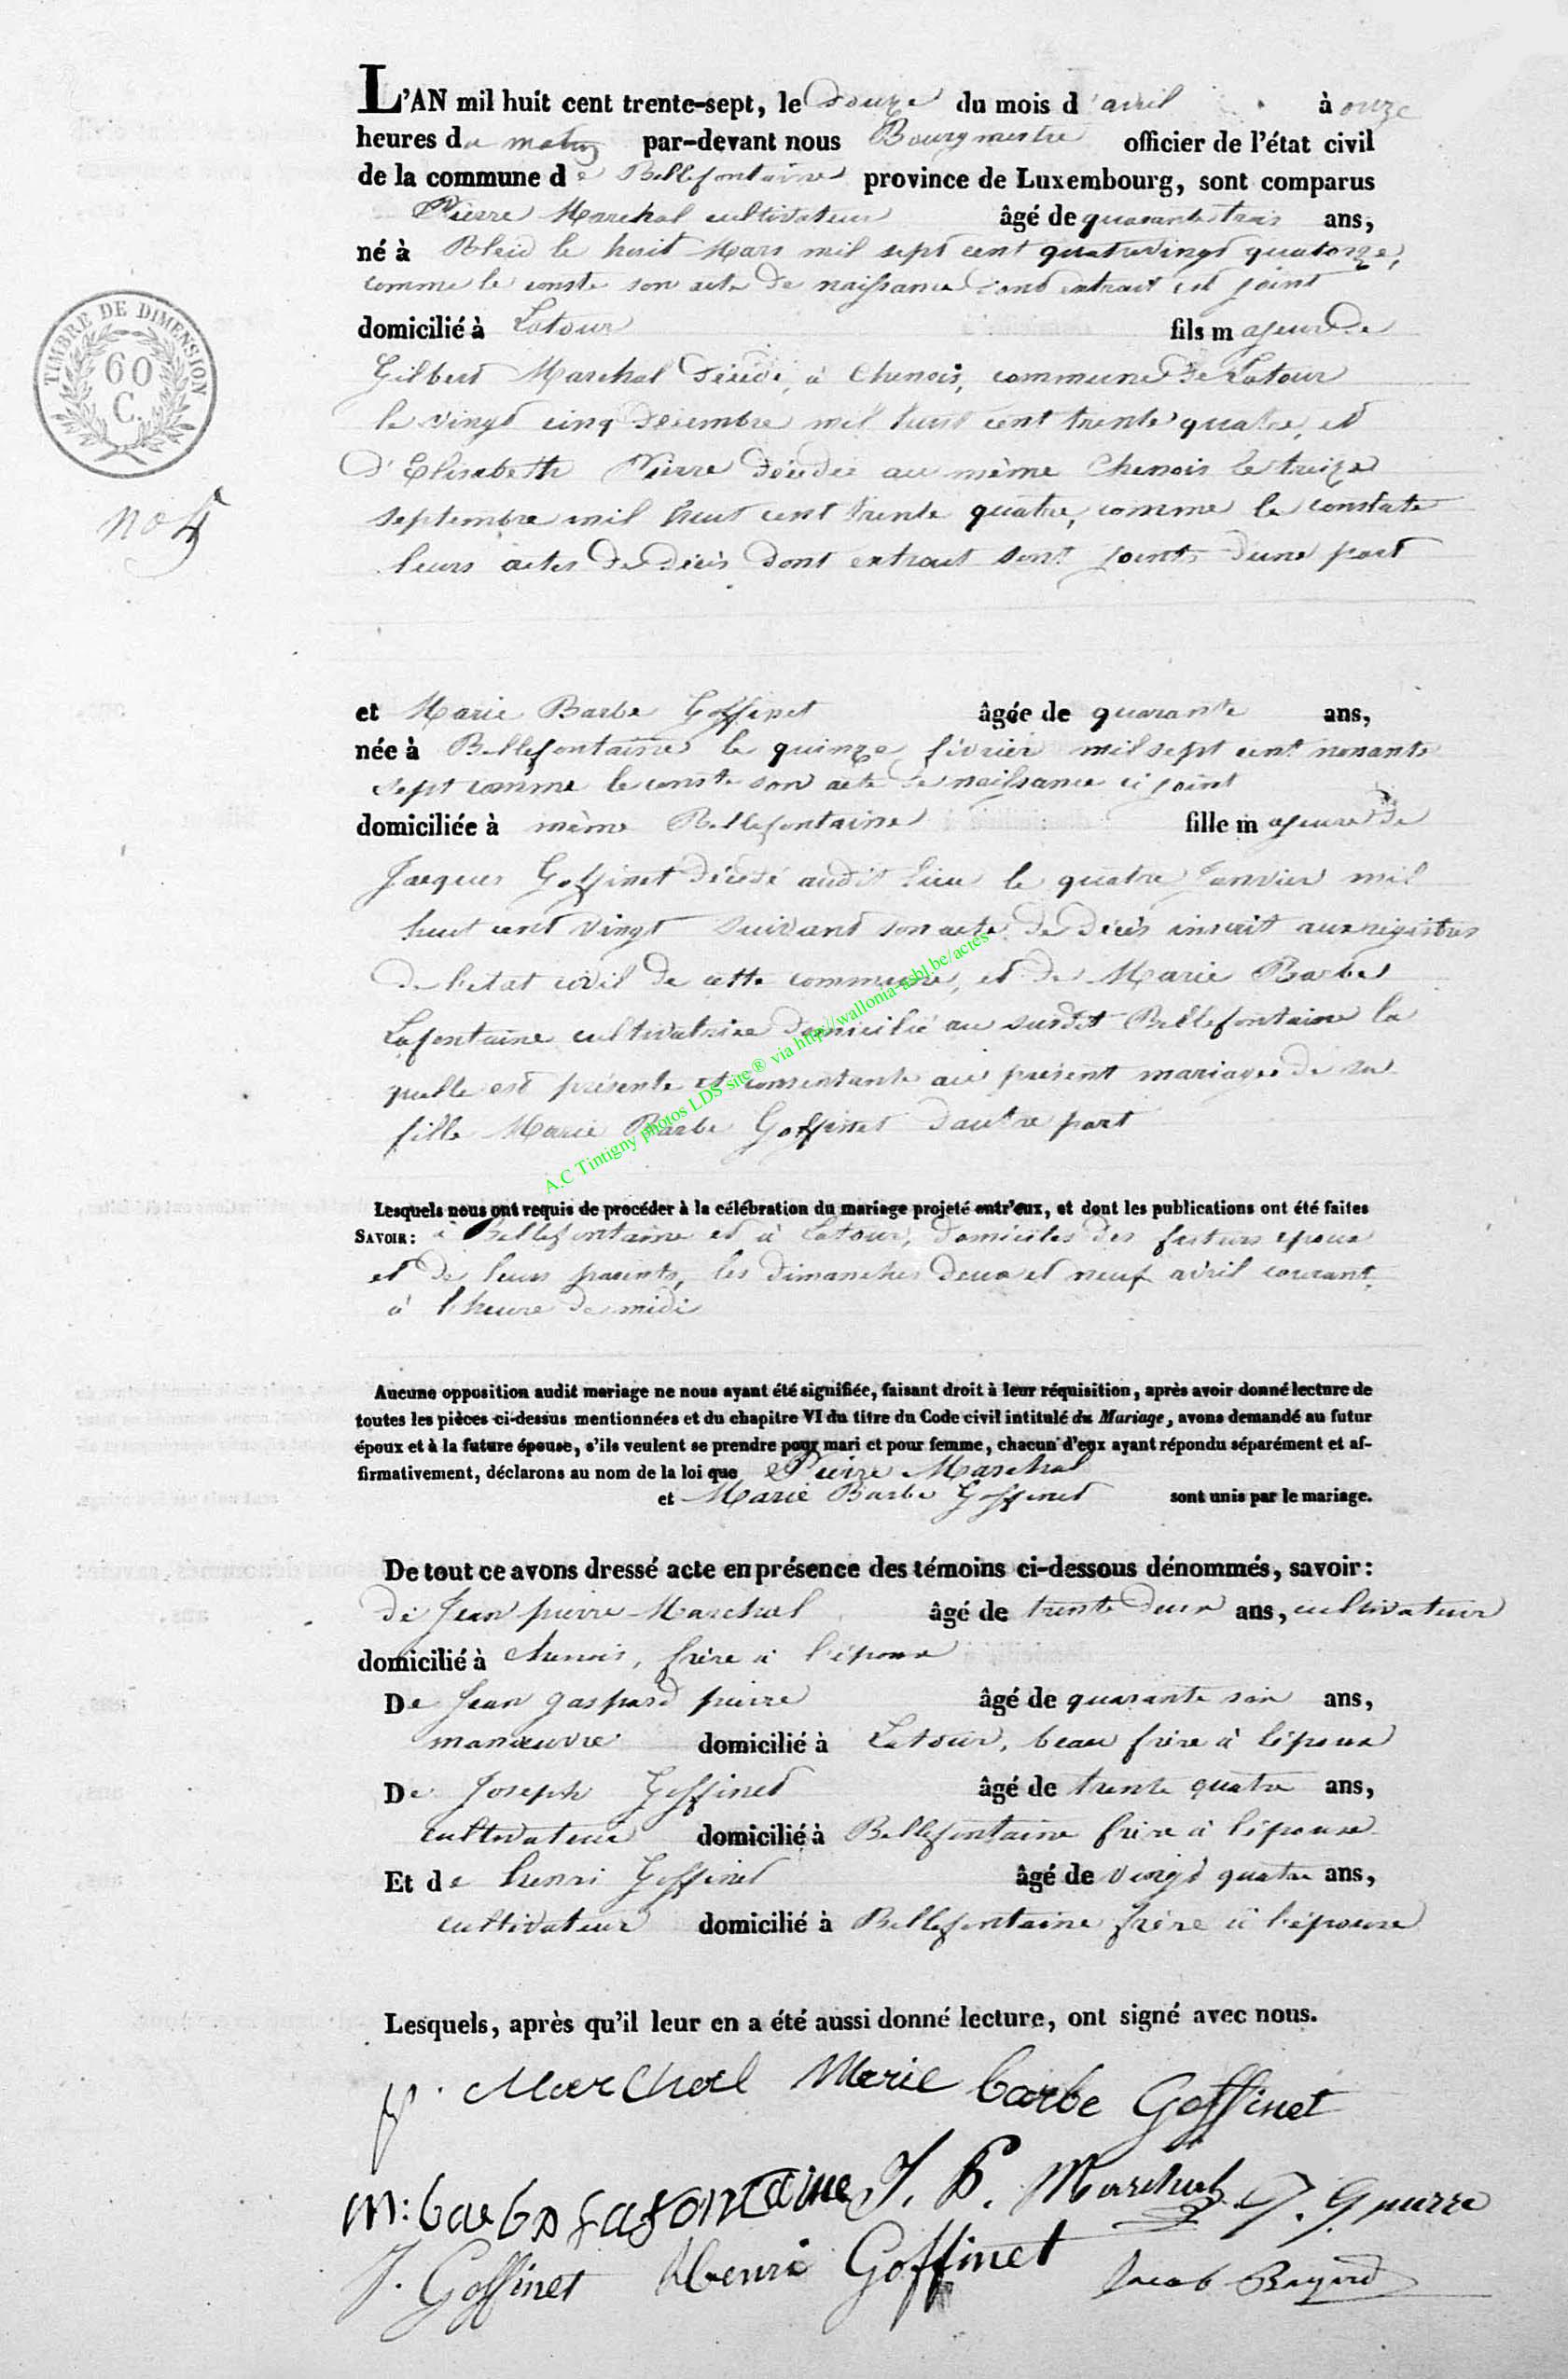 L'AN mil huit cent trente-sept, le douze du mois d'avril à onze
heures du matin par-devant nous Bourgmestre officier de l'état civil
de la commune de Bellefontaine province de Luxembourg, sont comparus
Pierre Marchal cultivateur âgé de quarante trois ans,
né à Bleid le huit Mars mil sept cent quatrevingt quatorze,
comme le conste son acte de naissance dont extrait est joint
domicilié à Latour fils majeur de
TIMBRE DE DIMENSION
60
C.
Gilbert Marchal décédé à Chenois, commune de Latour
le vingt cinq Décembre mil huit cent trente quatre, et
d'Elisabeth Pierre décédée au même Chenois le treize
septembre mil huit cent trente quatre, comme le constate
no 5
leurs actes de décès dont extrait sont joints d'une part
et Marie Barbe Goffinet âgée de quarante ans,
née à Bellefontaine le quinze février mil sept cent nonante
sept comme le conste son acte de naissance ci joint
domiciliée à même Bellefontaine fille majeure de
Jacques Goffinet décédé audit lieu le quatre Janvier mil
huit cent vingt suivant son acte de décès inscrit aux régistres
de l'état civil de cette commune, et de Marie Barbe
Lafontaine cultivatrice domicilié au susdit Bellefontaine la
quelle est présente et consentante au présent mariage de sa
fille Marie Barbe Goffinet d'autre part
A.C Tintigny photos LDS site ® via http://wallonia-asbl.be/actes
Lesquels nous ont requis de procéder à la célébration du mariage projeté entr'eux, et dont les publications ont été faites
SAVOIR: à Bellefontaine et à Latour, domiciles des futurs epoux
et de leurs parents, les dimanches deux et neuf avril courant,
à l'heure de midi
Aucune opposition audit mariage ne nous ayant été signifiée, faisant droit à leur réquisition, après avoir donné lecture de
toutes les pièces ci-dessus mentionnées et du chapitre VI du titre du Code civil intitulé du Mariage, avons demandé au futur
époux et à la future épouse, s'ils veulent se prendre pour mari et pour femme, chacun d'eux ayant répondu séparément et af-
firmativement, déclarons au nom de la loi que Pierre Marchal
et Marie Barbe Goffinet sont unis par le mariage.
De tout ce avons dressé acte en présence des témoins ci-dessous dénommés, savoir:
de Jean pierre Marchal âgé de trente deux ans, cultivateur
domicilié à chenois, frère à l'époux
De Jean gaspard pierre âgé de quarante six ans,
manœuvre domicilié à Latour, beau frère à l'époux
De Joseph Goffinet âgé de trente quatre ans,
cultivateur domicilié à Bellefontaine frère à l'épouse
Et de henri Goffinet âgé de vingt quatre ans,
cultivateur domicilié à Bellefontaine frère à l'épouse
Lesquels, après qu'il leur en a été aussi donné lecture, ont signé avec nous.
p. Marchal Marie barbe Goffinet
m: barbe Lafontaine J. P. Marchal J. G pierre
J. Goffinet Henri Goffinet Jacob Bayard